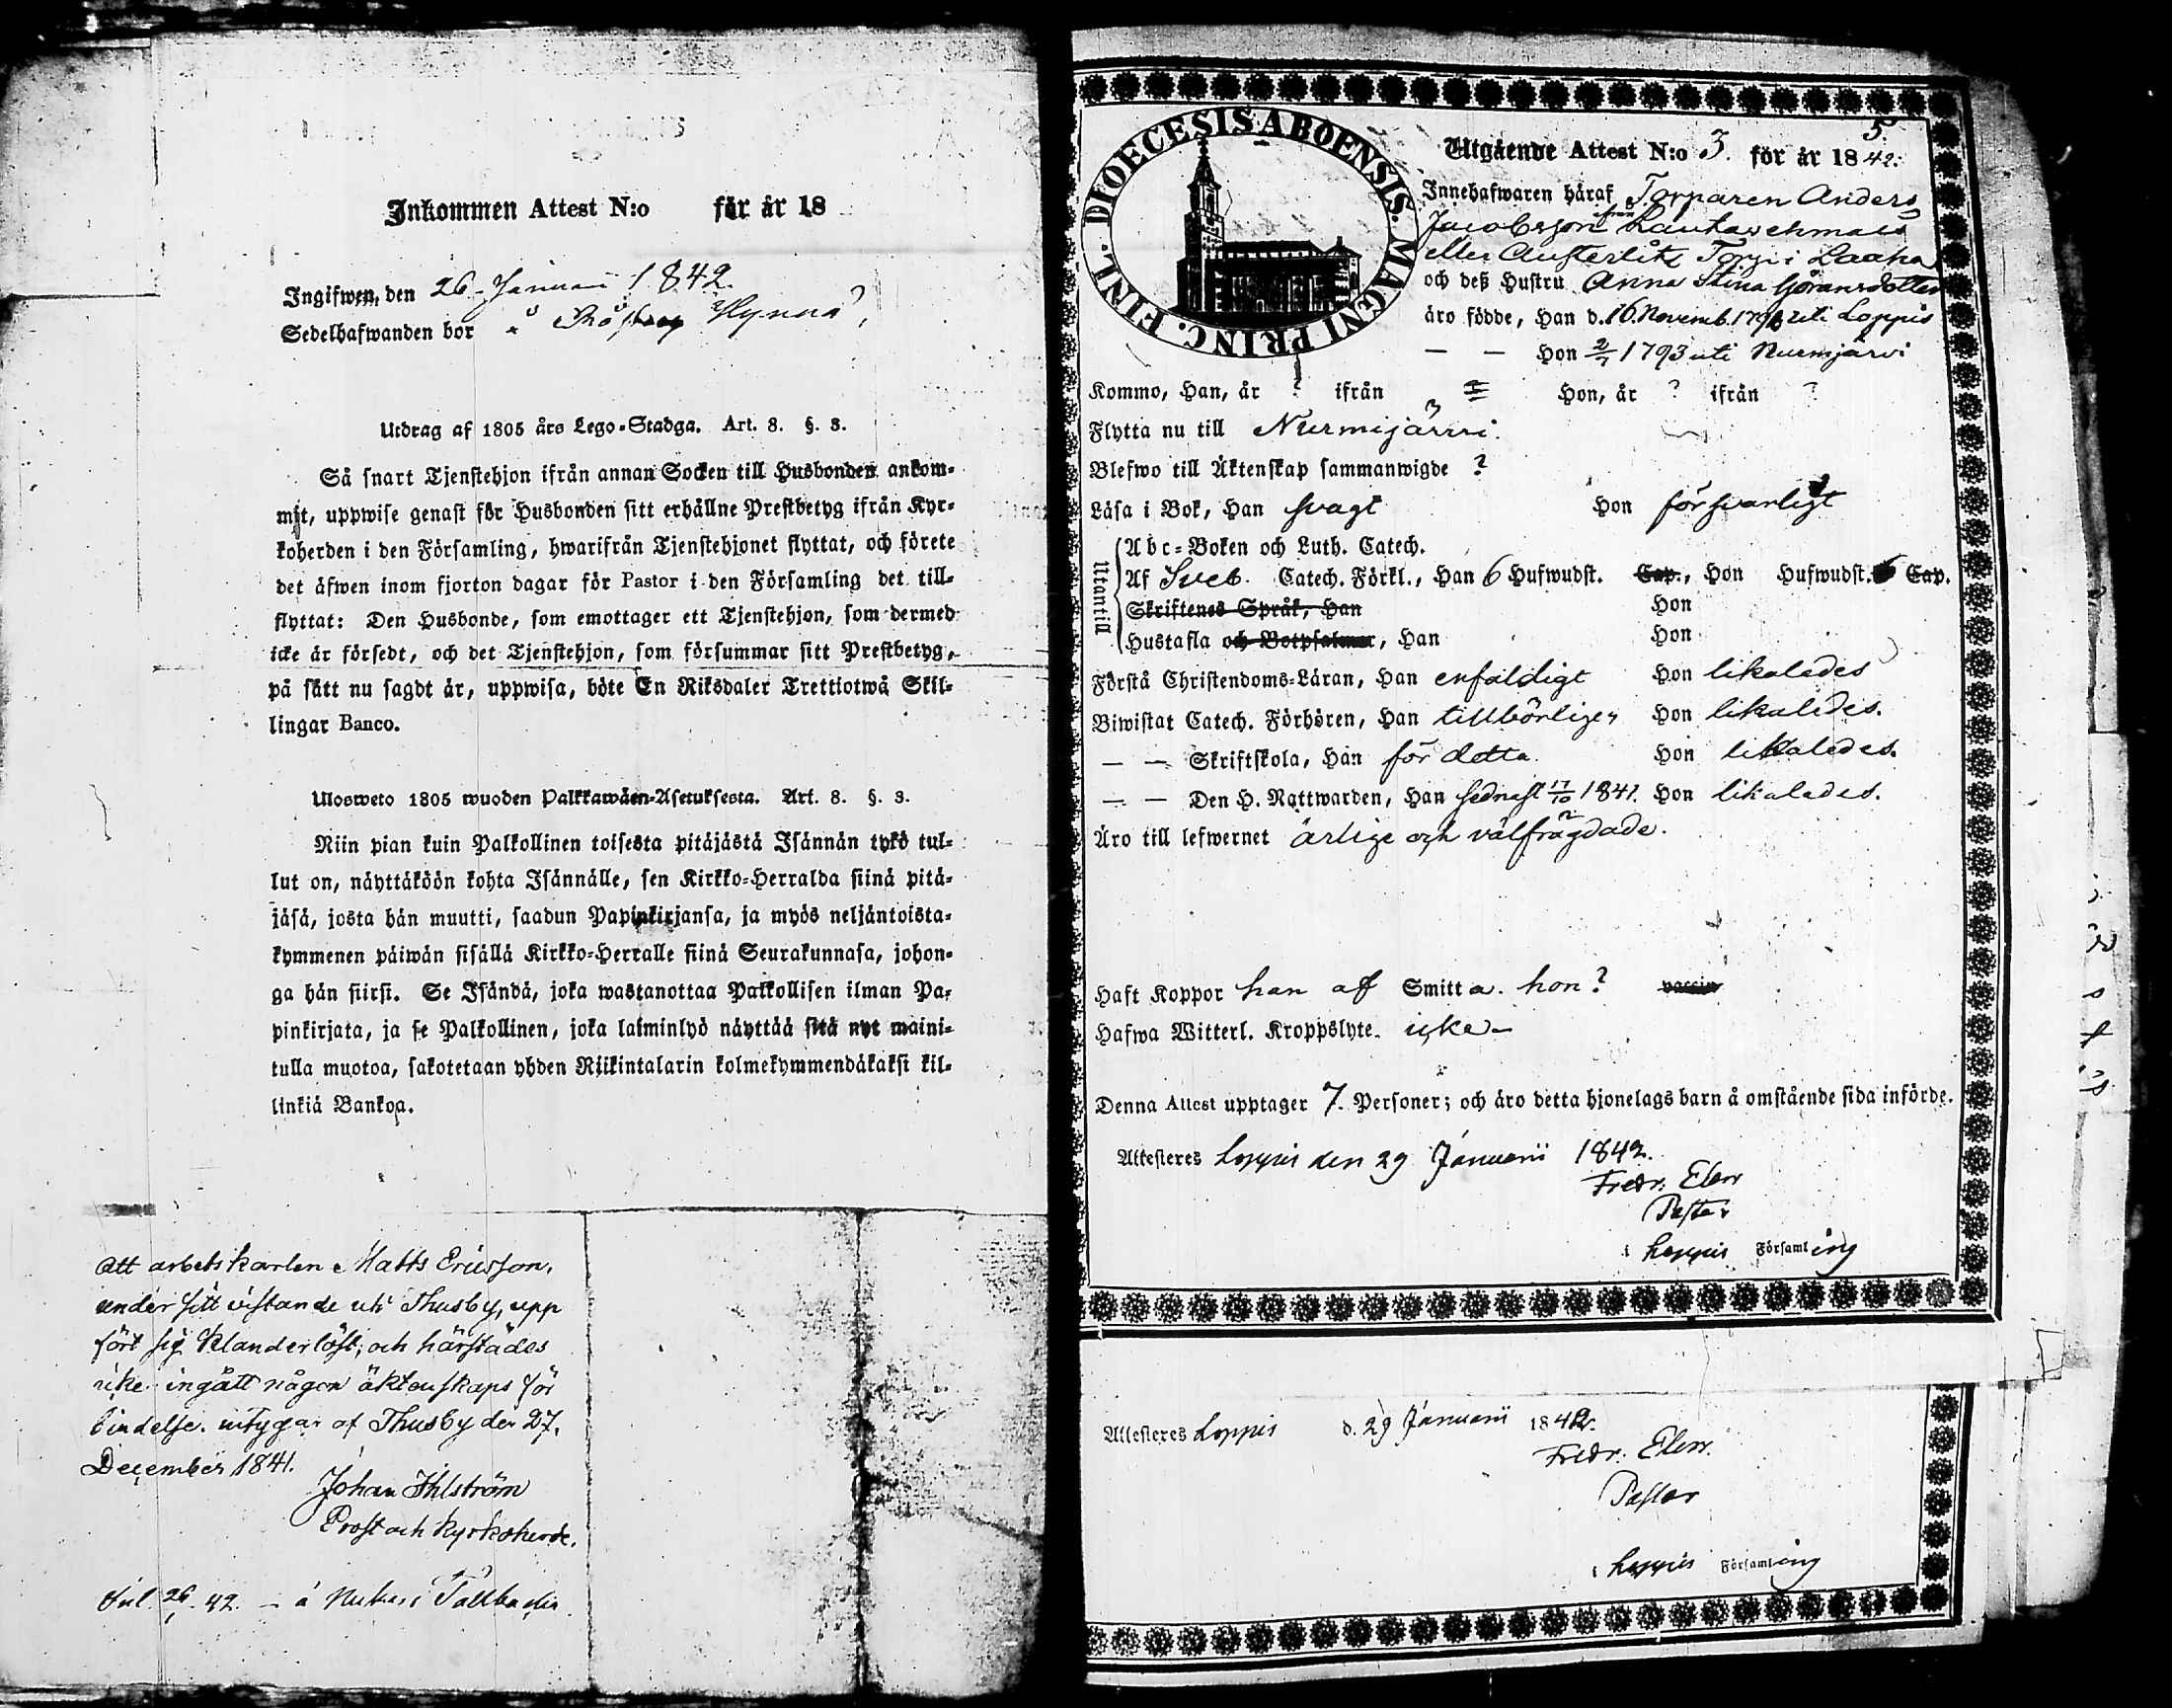 Inkommen Attest N:o för år 18
Ingifwen, den 26 Januari 1842.
Sedelhafwanden bor å Hynnä,
Utdrag af 1805 års Lego-Stadga. Art. 8. §. 3.
Så snart Tjenstehjon ifrån annan Socken till Husbonden ankom-
mit, uppwise genast för Husbonden sitt erhållne Prestbetyg ifrån Kyr-
koherden i den Församling, hwarifrån Tjenstehjonet flyttat, och förete
det äfwen inom fjorton dagar för Pastor i den Församling det till-
flyttat: Den Husbonde, som emottager ett Tjenstehjon, som dermed
icke är försedt, och det Tjenstehjon, som försummar sitt Prestbetyg,
på sätt nu sagdt är, uppwisa, böte En Riksdaler Trettiotwå Skil-
lingar Banco.
Ulosweto 1805 wuoden Palkkawäen-Asetuksesta. Art. 8. §. 3.
Niin pian kuin Palkollinen toisesta pitäjästä Isännän tykö tul-
lut on, näyttäköön kohta Isännälle, sen Kirkko-Herralda siinä pitä-
jäsä, josta hän muutti, saadun Papinkirjansa, ja myös neljäntoista-
kymmenen päiwän sisällä Kirkko-Herralle siinä Seurakunnasa, johon-
ga hän siirsi. Se Isändä, joka wastanottaa Palkollisen ilman Pa-
pinkirjata, ja se Palkollinen, joka laiminlyö näyttää sitä nyt maini-
tulla muotoa, sakotetaan yhden Riikintalarin kolmekymmendäkaksi kil-
linkiä Bankoa.
Att arbetskarlen Matts Ericsson,
under sitt vistande uti Thusby, upp
fört sig klanderlöst, och härstädes
icke ingått någon äktenskaps för
bindelse. intygar af Thusby den 27.
December 1841.
Johan Ihlström
Prost och Kyrkoherde.
26 42. – å Nukari Tallbacka
DIOECESIS ABOENSIS. MAGNI PRINC. FINL.
5
Utgående Attest N:o 3. för år 1842.
Innehafwaren häraf Torparen Anders
Jacobsson ifrån
eller Austerlitz Torp i Laaka
och deß Hustru Anna Stina Göransdotter
äro födde, Han d. 16 Novemb. 179 uti Loppis
— — Hon 2/7 1793 uti Nurmjärvi
Kommo, Han, år ? ifrån Hon, år ? ifrån ?
Flytta nu till Nurmijärvi.
Blefwo till Äktenskap sammanwigde ?
Läsa i Bok, Han svagt Hon försvarligt
Utantill
Abc-Boken och Luth. Catech.
Af Sveb. Catech. Förkl., Han 6 Hufwudst. Cap., Hon Hufwudst. Cap.
Skriftenes Språk, Han Hon
Hustafla och Botpsalmer, Han Hon
Förstå Christendoms-Läran, Han enfaldigt Hon likaledes
Biwistat Catech. Förhören, Han tillbörligen Hon likaledes.
— — Skriftskola, Han för detta. Hon likaledes.
— — Den H. Nattwarden, Han sednast 17/10 1841. Hon likaledes.
Äro till lefwernet ärlige och välfrägdade.
Haft Koppor han af Smitta. hon? vaccin
Hafwa Witterl. Kroppslyte. icke –
Denna Attest upptager 7. Personer; och äro detta hjonelags barn å omstående sida införde.
Attesteres Loppis den 29 Januarii 1842.
Fredr. Elen
Pastor
i Loppis Församling
Attesteres Loppis d. 29 Januarii 1842.
Fredr. Elen.
Pastor
i Loppis Församling